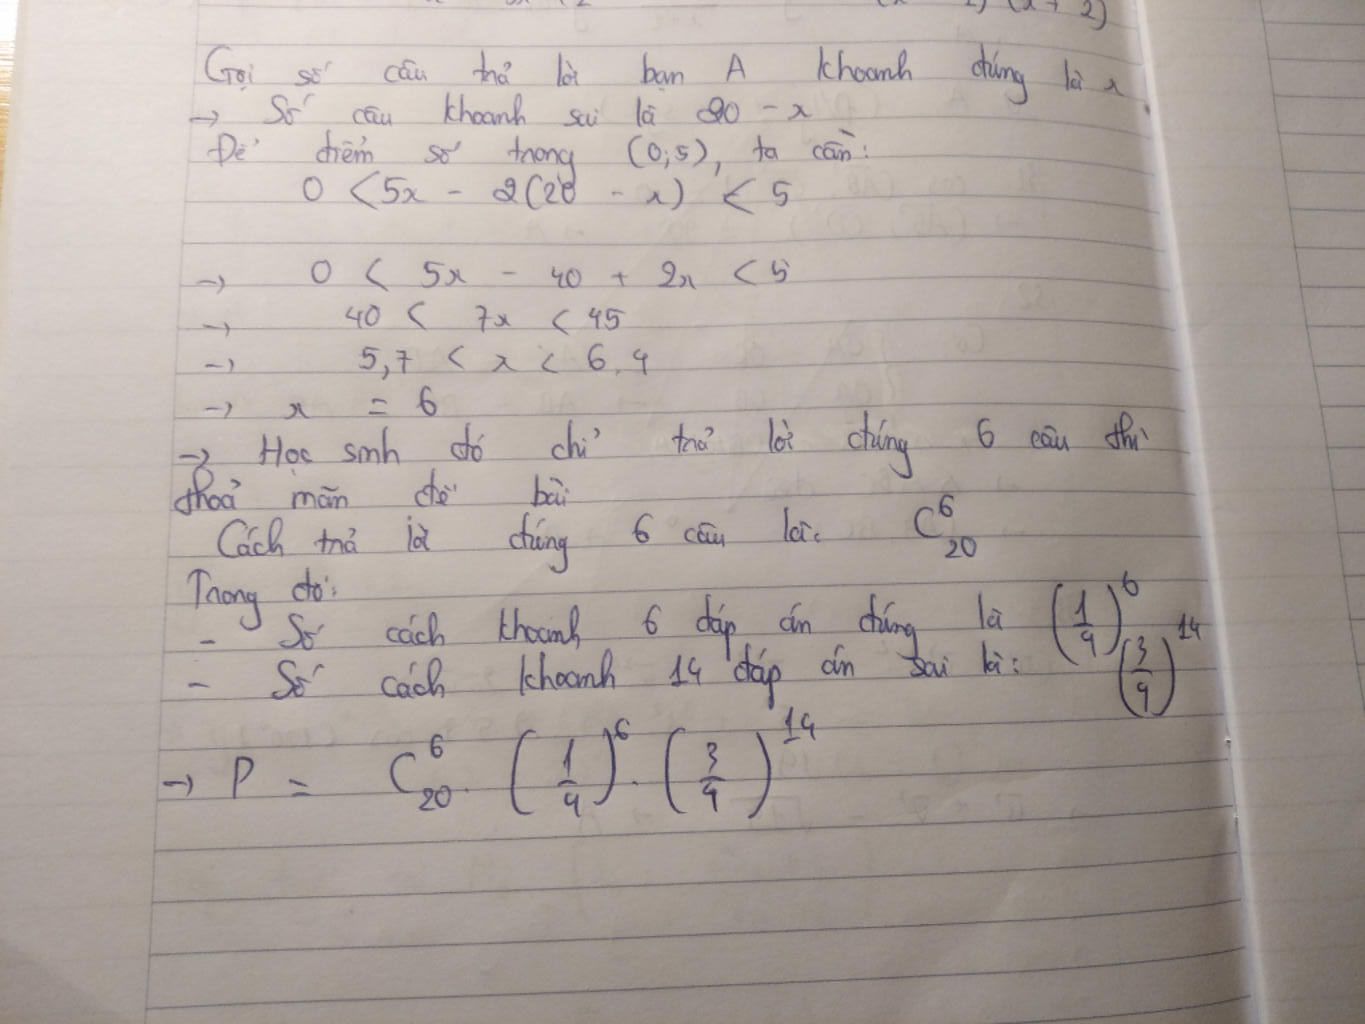 (x + 2)
Gọi số câu trả lời bạn A khoanh đúng là x
→ Số câu khoanh sai là 20 - x
Để điểm số trong (0;5), ta cần:
0 < 5x - 2(20 - x) < 5
→ 0 < 5x - 40 + 2x < 5
→ 40 < 7x < 45
→ 5,7 < x < 6,4
→ x = 6
→ Học sinh đó chỉ trả lời đúng 6 câu thì
thoả mãn đề bài
Cách trả lời đúng 6 câu là: C_{20}^{6}
Trong đó:
- Số cách khoanh 6 đáp án đúng là (1/4)^6
- Số cách khoanh 14 đáp án sai là: (3/4)^14
→ P = C_{20}^{6} . (1/4)^6 . (3/4)^14